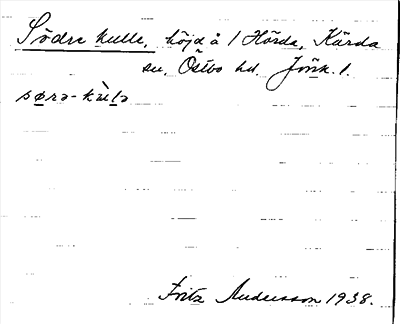 Södre kulle, höjd å 1 Hörda, Kärda
sn, Östbo hd. Jönk. l.
sørə-kùlə
Fritz Andersson 1938.